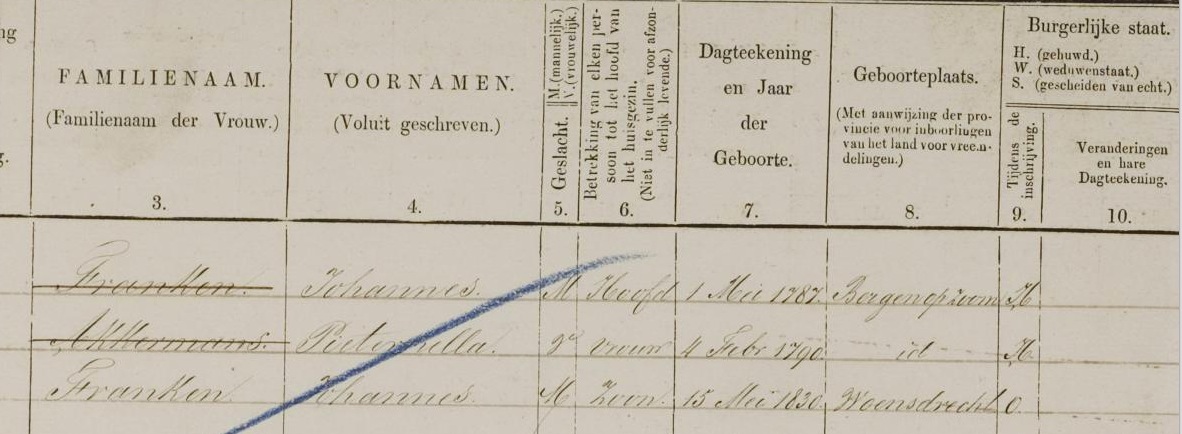 ng
g.
FAMILIENAAM.
(Familienaam der Vrouw.)
3.
VOORNAMEN.
(Voluit geschreven.)
4.
Geslacht. M. (mannelijk.)
V. (vrouwelijk.)
5.
Betrekking van elken per-
soon tot het hoofd van
het huisgezin.
(Niet in te vullen voor afzon-
derlijk levende.)
6.
Dagteekening
en Jaar
der
Geboorte.
7.
Geboorteplaats.
(Met aanwijzing der pro-
vincie voor inboorlingen
van het land voor vreem-
delingen.)
8.
Burgerlijke staat.
H. (gehuwd.)
W. (weduwenstaat.)
S. (gescheiden van echt.)
Tijdens de
inschrijving.
9.
Veranderingen
en hare
Dagteekening.
10.
Franken. Johannes. M Hoofd 1 Mei 1787. Bergen op Zoom H
Akkermans. Pieternella. Vrouw 4 Febr 1790 id H
Franken Johannes. M Zoon. 15 Mei 1830. Woensdrecht O